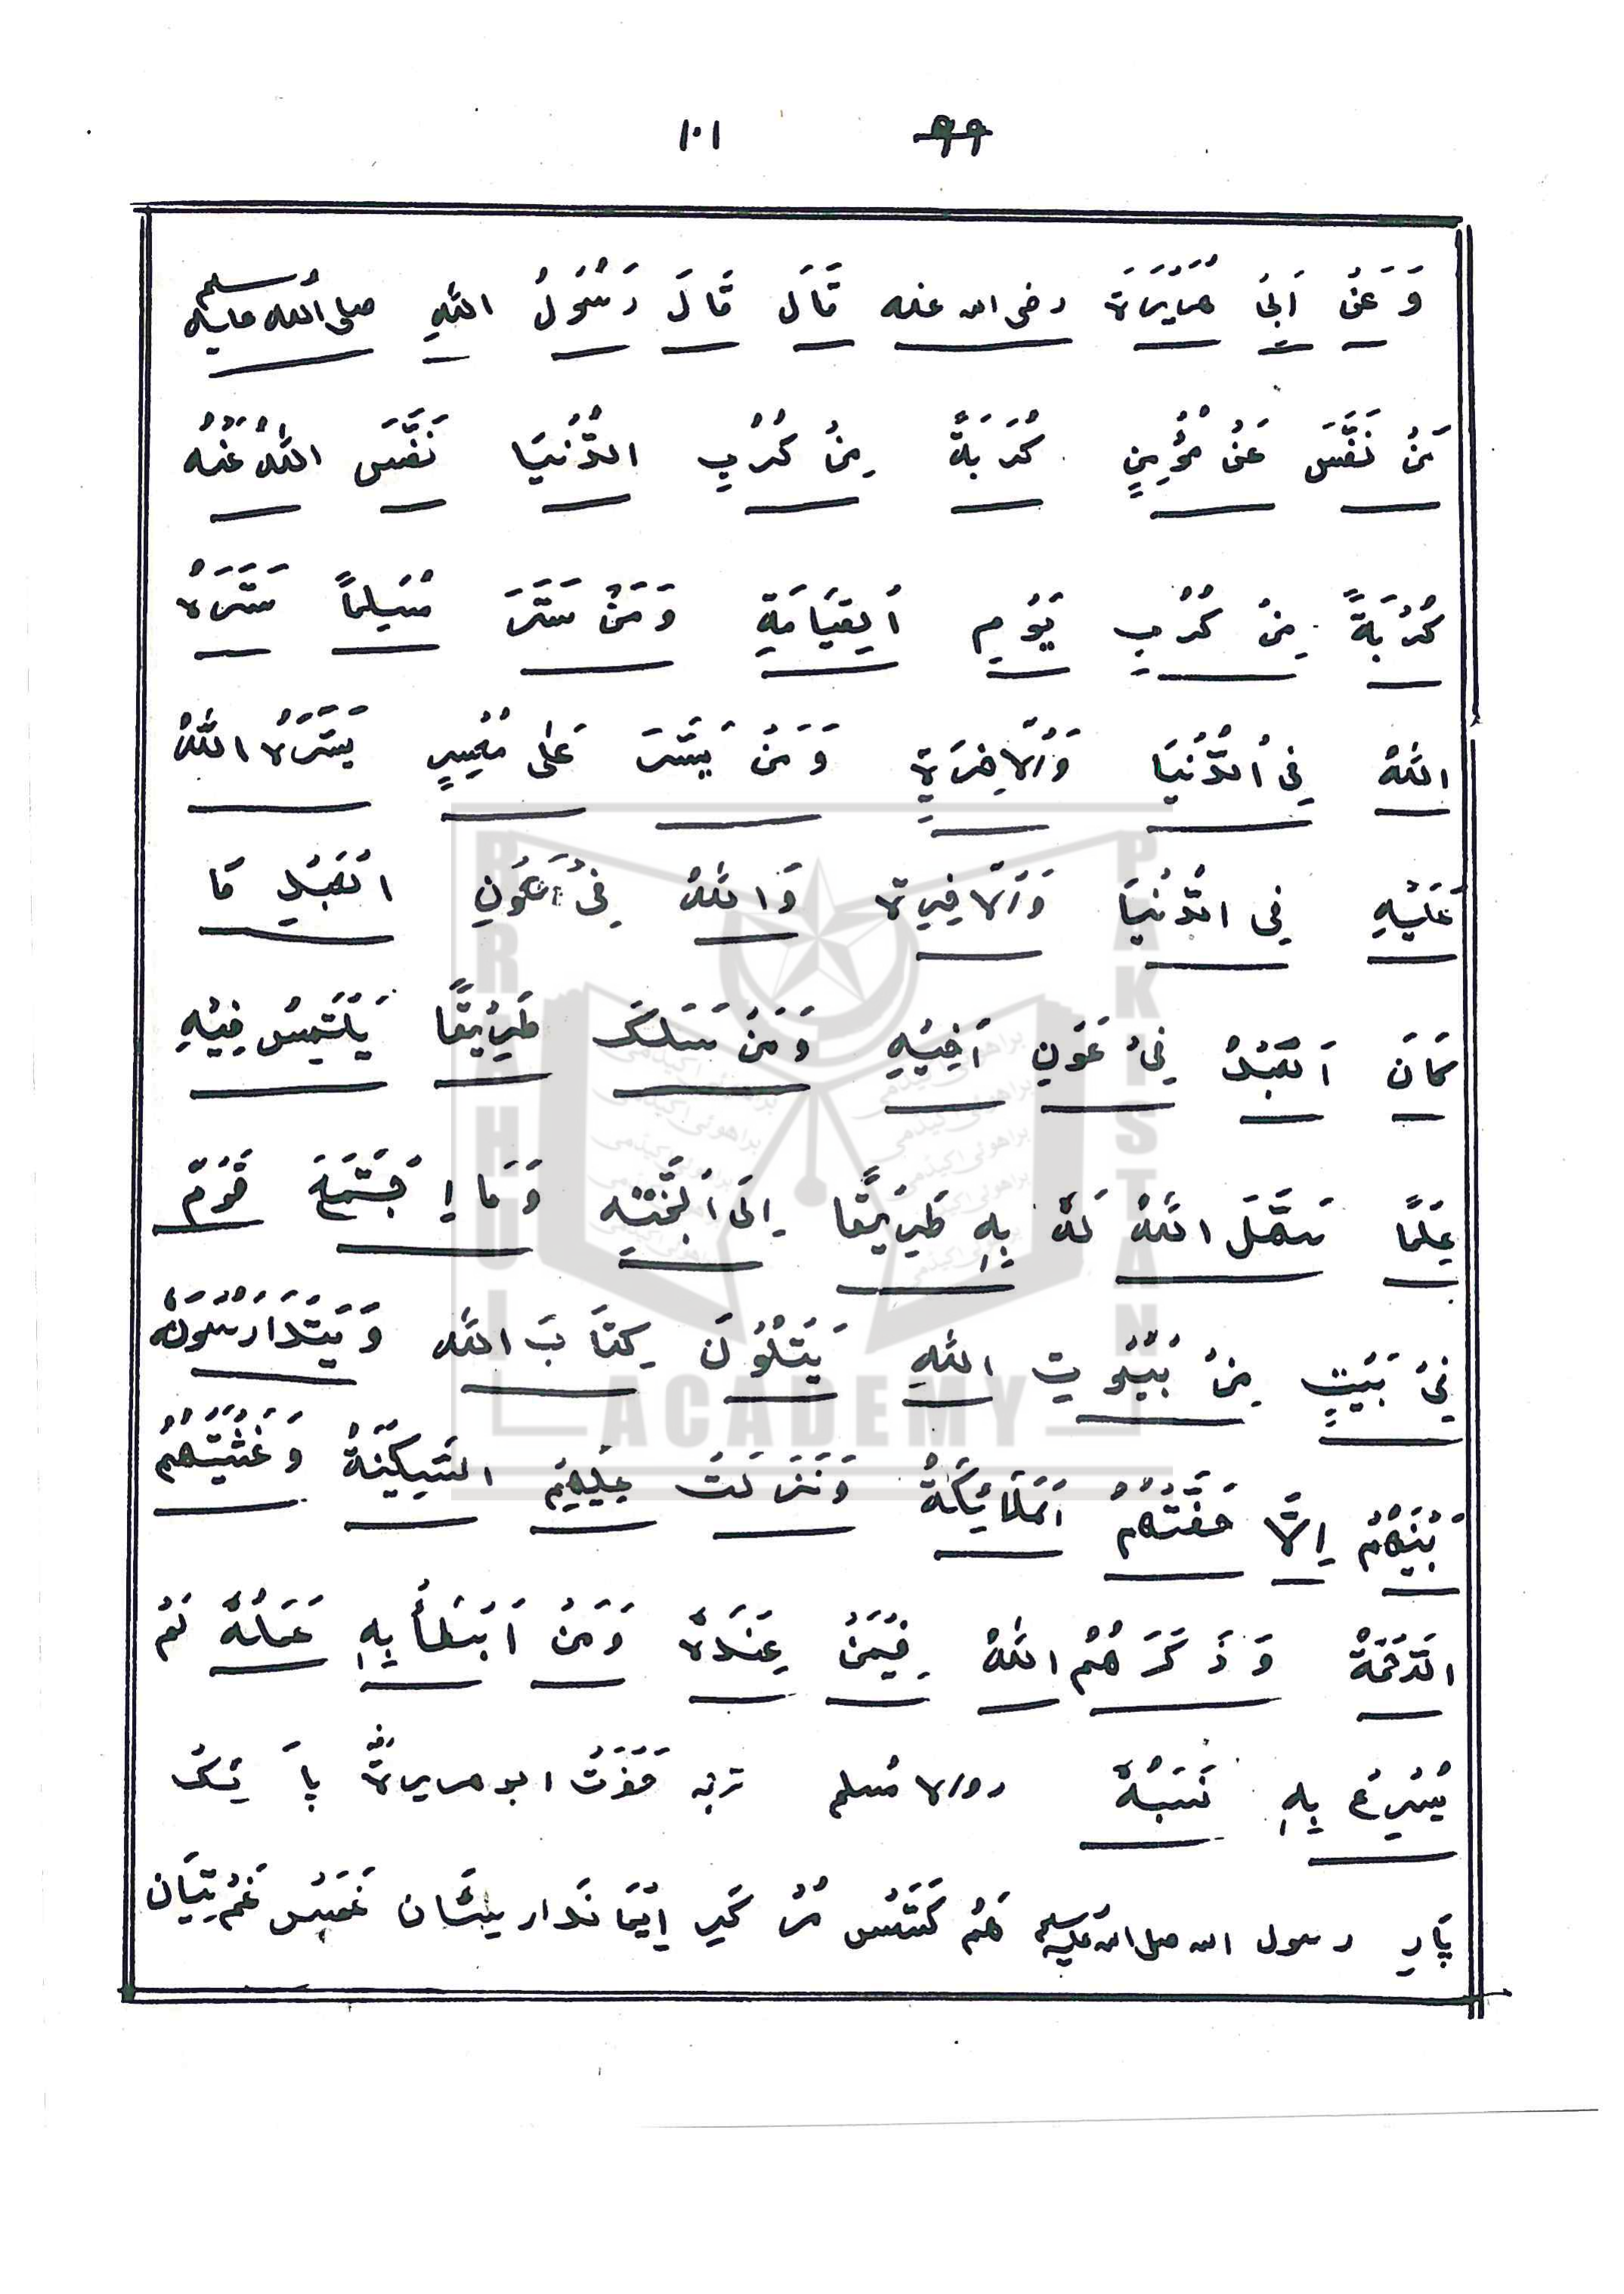 ۹۹ ۱۰۱
وَعَنْ اَبِیْ هُرَيْرَة رضی الله عنه قَالَ قَالَ رَسُوْلُ اللّٰهِ صلی اللّٰه علیه وسلم
مَنْ نَفَّسَ عَنْ مُؤْمِنٍ كُرَبَةً مِنْ كُرْبِ الدُّنْيَا نَفَّسَ اللّٰهُ عَنْهُ
كُرْبَةً مِنْ كُرْبِ يَوْمِ اَلِقيَامَةِ وَمَنْ سَتَرَ مُسْلِمًا سَتَرَهُ
اللّٰهُ فِی الدُّنْيَا وَالْآخِرَةِ وَمَنْ يَسَّرَ عَلٰى مُعْسِرٍ يَسَّرَهُ اللّٰهُ
عَلَيْهِ فِی الدُّنْيَا وَالْآخِرة وَاللّٰهُ فِیْ عَوْنِ الْعَبْدِ مَا
كَانَ اَلعَبْدُ فِیْ عَوَنِ اَخِيْهِ وَمَنْ سَلَكَ طَرِيْقًا يَلْتَمِسُ فِيْهِ
عِلمًا سَهَّلَ اللّٰهُ لَهُ بِهٖ طَرِيْقًا اِلَی الْجَنَّتِهِ وَمَا اِجْتَمَعَ قَوْمٌ
فِیْ بَيْتٍ مِنْ بُيُوتِ اللّٰهِ يَتْلُوْنَ كِتَابَ اللّٰه وَيَتَدَارَسُوْنَهٗ
بَيْنَهُمْ اِلَّا حَفَّتْهُمُ اَلمَلَائِكَةُ وَنَزَلَتْ عَلِيهِمْ السَّكِيْنَةُ وَغَشِيَتْهُمُ
الرَحْمَةُ وَذَكَرَهُمُ اللّٰهُ فِيْمَنْ عِنْدَهٗ وَمَنْ اَبَطَأْ بِهٖ عَمَلُهٗ لَمْ
يُسْرِعْ بِهٖ نَسَبُهٗ رواه مُسلم ترجمہ حَضْرَتْ ابو هريرةؓ پاَ ئِکْ
پَارِ رسول الله صلی الله علیه وسلم هَمُ كَسَّسْ مُرْ كَرِ اِيْمَاندار بَنْدَغان غَمَسْ غَمْ تِيَان
BRAHUI ACADEMY PAKISTAN
براهوئی اکیڈمی